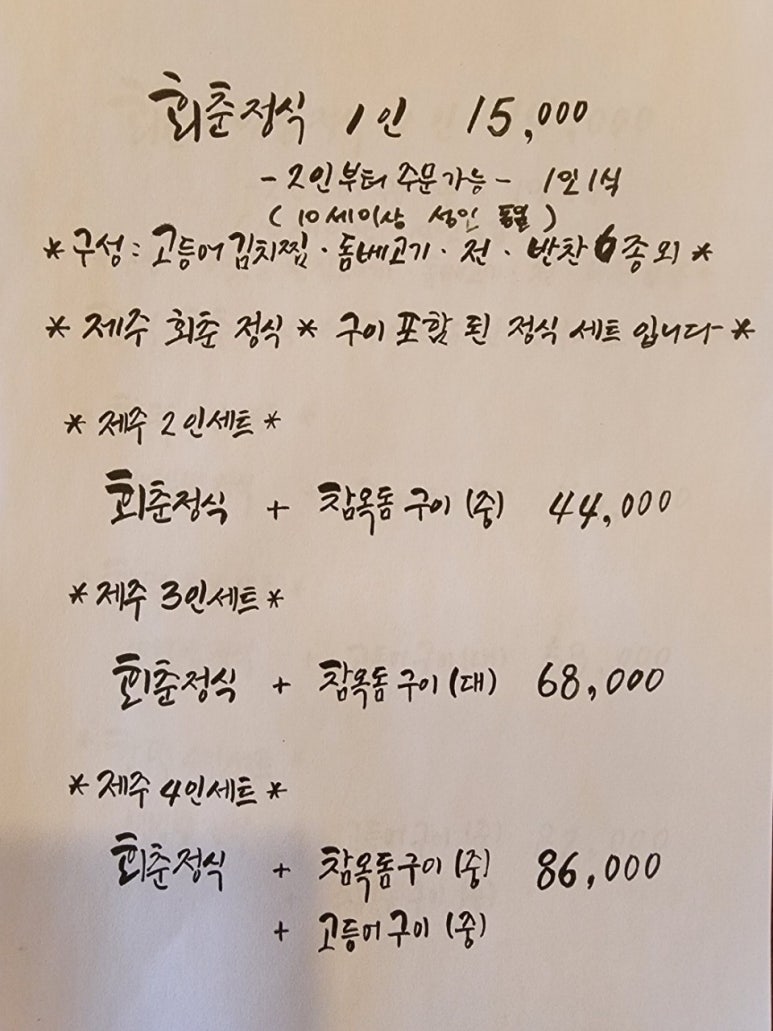 회춘정식 1인 15,000
- 2인부터 주문가능 - 1인1식
(10세이상 성인 동일)
* 구성 : 고등어김치찜 · 돔베고기 · 전 · 반찬 6종 외 *
* 제주 회춘 정식 * 구이 포함 된 정식 세트 입니다 *
* 제주 2인세트 *
회춘정식 + 참옥돔 구이 (중) 44,000
* 제주 3인세트 *
회춘정식 + 참옥돔 구이 (대) 68,000
* 제주 4인세트 *
회춘정식 + 참옥돔구이 (중) 86,000
+ 고등어구이 (중)